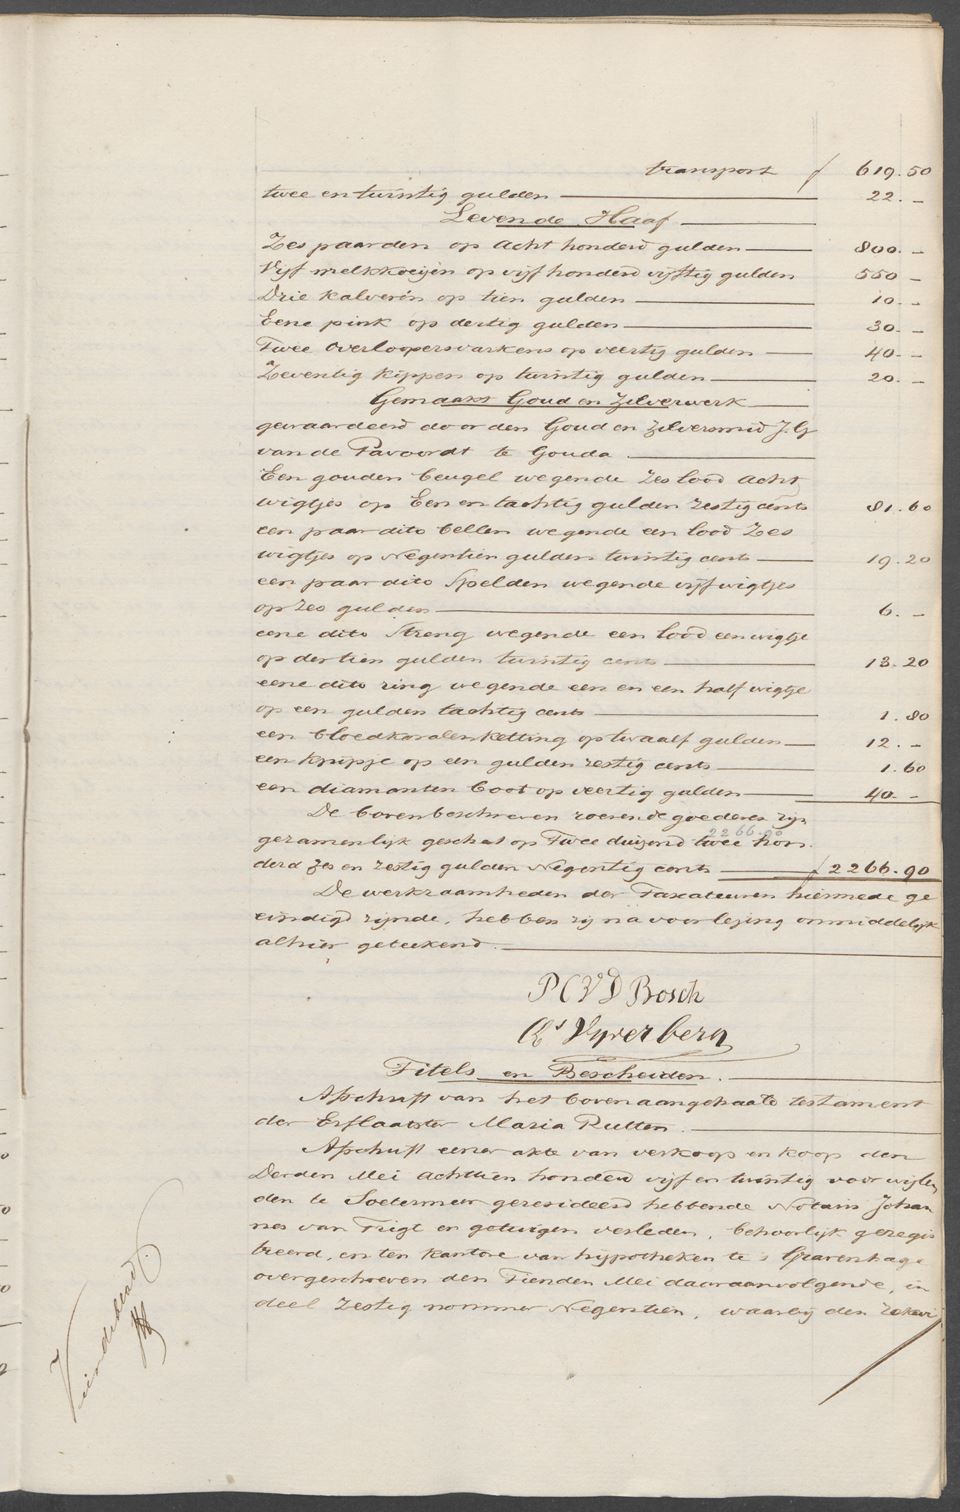 transport f 619.50
twee en twintig gulden 22.-
Levende Haaf
Zes paarden op acht honderd gulden 800.-
Vijf melkkoeijen op vijf honderd vijftig gulden 550-
Drie kalveren op tien gulden 10.-
Eene pink op dertig gulden 30.-
Twee overloopersvarkens op veertig gulden 40.-
Zeventig kippen op twintig gulden 20.-
Gemaakt Goud en Zilverwerk
gewaardeerd door den Goud en Zilversmid J.G
van de Pavoordt te Gouda
Een gouden beugel wegende zes lood acht
wigtjes op Een en tachtig gulden zestig cents 81.60
een paar dito bellen wegende een lood zes
wigtjes op Negentien gulden twintig cents 19.20
een paar dito Spelden wegende vijf wigtjes
op zes gulden 6.-
eene dito Streng wegende een lood een wigtje
op dertien gulden twintig cents 13.20
eene dito ring wegende een en een half wigtje
op een gulden tachtig cents 1.80
een bloedkoralen ketting op twaalf gulden 12.-
een knipje op een gulden zestig cents 1.60
een diamanten boot op veertig gulden 40.-
De bovenbeschreven roerende goederen zijn
2266.90
gezamenlijk geschat op Twee duizend twee hon
derd zes en zestig gulden Negentig cents f 2266.90
De werkzaamheden der Taxateuren hiermede ge
eindigd zijnde, hebben zij na voorlezing onmiddelijk
alhier geteekend.
P C V D Bosch
Cs Vyverberg
Titels en Bescheiden.
Afschrift van het bovenaangehaalde testament
der Erflaatster Maria Rutten.
Afschrift eener akte van verkoop en koop den
Derden Mei achttien honderd vijf en twintig voor wijlen
den te Soetermeer geresideerd hebbende Notaris Johan
nes van Trigt en getuigen verleden, behoorlijk geregis
treerd, en ten kantore van hypotheken te s Gravenhage
overgeschreven den Tienden Mei daaraanvolgende, in
deel zestig nommer Negentien, waarbij den
Vierdeblad.